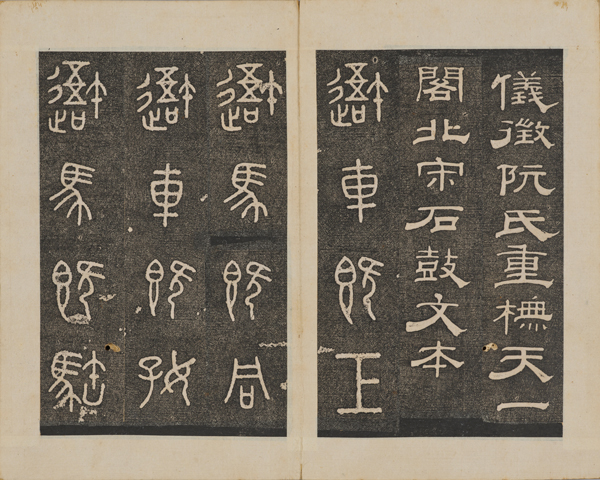 儀徵阮氏重橅天一
閣北宋石鼓文本
𨖍車既工
𨖍馬既同
𨖍車既好
𨖍馬既